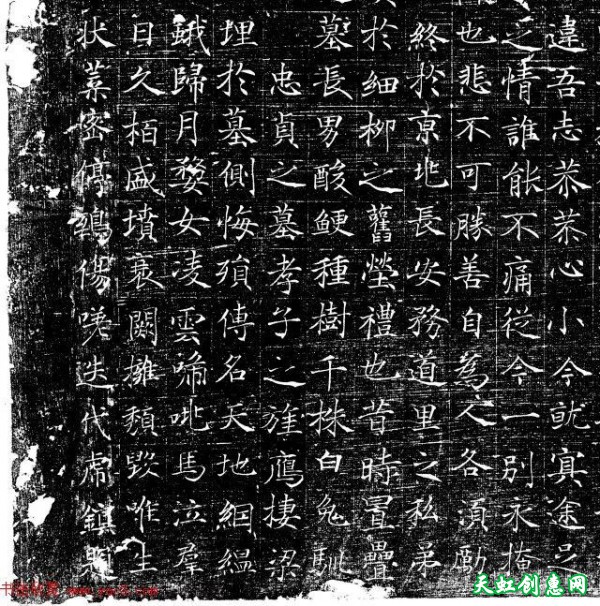 違吾志恭恭心小今就冥途足
之情誰能不痛從今一別永掩
也悲不可勝善自為人各須勵
終於京兆長安務道里之私弟
於細柳之舊塋禮也昔時置疊
墓長男酸鯁種樹千株白兔馴
忠貞之墓孝子之旌鷹棲梁
埋於墓側悔須傳名天地絪縕
蛾歸月婺女凌雲啼馬泣群
日久栢盛墳衰闕摧頹毀唯生
狀葉密停傷嗟迭代
天虹创意网